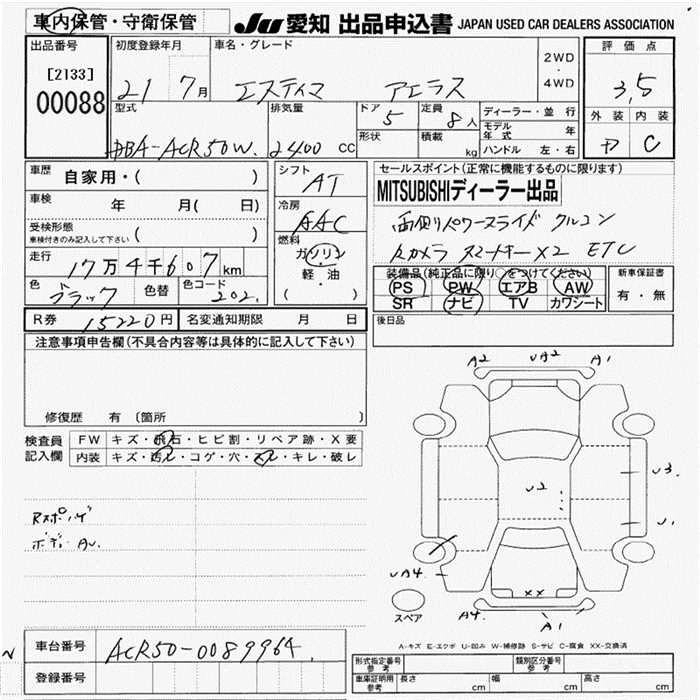 車内保管・守衛保管
JU 愛知 出品申込書 JAPAN USED CAR DEALERS ASSOCIATION
出品番号 初度登録年月 車名・グレード 2WD・4WD 評価点
[2133]
00088
21 7月 エスティマ アエラス 3,5
型式 排気量 ドア 5 定員 8人 ディーラー・並行 外装 内装
形状 積載 kg モデル年式 年
DBA-ACR50W. 2400 CC ハンドル 左・右 C
車歴 自家用・( ) シフト AT セールスポイント(正常に機能するものに限ります)
MITSUBISHIディーラー出品
車検 年 月( 日) 冷房 AAC
両側リパワースライド クルコン
受検形態 ( )
車検付きのみ記入して下さい
燃料 ガソリン・軽・油 ( )
Rカメラ スマートキー×2 ETC
走行 17万4千607km
装備品(純正品に限り○をつけてください) 新車保証書
色 ブラック 色替 色コード 202.
PS PW エアB AW 有・無
SR ナビ TV カワシート
R券 15220円 名変通知期限 月 日 後日品
注意事項申告欄(不具合内容等は具体的に記入して下さい)
修復歴 有 〔箇所 〕
A2 UA2 A1
検査員記入欄 FW キズ・飛石・ヒビ割・リペア跡・X要
内装 キズ・汚レ・コゲ・穴・スレ・キレ・破レ
U2
U3.
U1
Rスポ
ボディAU.
UA4.
XX
スペア
A4.
A1
A-キズ E-エクボ U-凹み W-補修跡 S-サビ C-腐食 XX-交換済
N
車台番号 ACR50-0089964.
登録番号
形式指定番号 参考 類別区分番号 参考
車庫証明用 参考 長さ cm 幅 cm 高さ cm